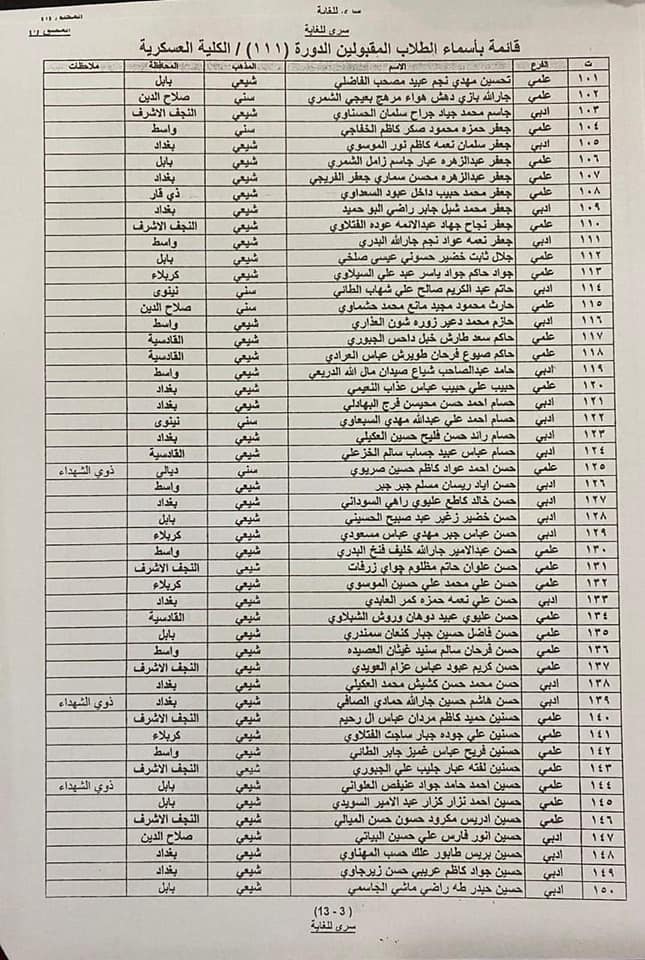 سري للغاية
سري للغاية
قائمة بأسماء الطلاب المقبولين الدورة (١١١) / الكلية العسكرية
ت الفرع الاسم المذهب المحافظة ملاحظات
١٠١ علمي تحسين مهدي نجم عبيد مصحب الفاضلي شيعي بابل
١٠٢ علمي جارالله بازي دهش هواء مرهج بعيجي الشمري سني صلاح الدين
١٠٣ ادبي جاسم محمد جياد جراح سلمان الحسناوي شيعي النجف الاشرف
١٠٤ علمي جعفر حمزه محمود صكر كاظم الخفاجي سني واسط
١٠٥ ادبي جعفر سلمان نعمه كاظم نور الموسوي شيعي بغداد
١٠٦ علمي جعفر عبدالزهره عبار جاسم زامل الشمري شيعي بابل
١٠٧ علمي جعفر عبدالزهره محسن سماري جعفر الفريجي شيعي بغداد
١٠٨ علمي جعفر محمد حبيب داخل عبود السعداوي شيعي ذي قار
١٠٩ ادبي جعفر محمد شبل جابر راضي البو حميد شيعي بغداد
١١٠ علمي جعفر نجاح جهاد عبدالائمه عوده الفتلاوي شيعي النجف الاشرف
١١١ ادبي جعفر نعمه عواد نجم جارالله البدري شيعي واسط
١١٢ علمي جلال ثابت خضير حسوني عيسى صلخي شيعي بابل
١١٣ علمي جواد حاكم جواد ياسر عبد علي السيلاوي شيعي كربلاء
١١٤ ادبي حاتم عبد الكريم صالح علي شهاب الطائي سني نينوى
١١٥ علمي حارث محمود مجيد مانع محمد حشماوي سني صلاح الدين
١١٦ ادبي حازم محمد دعير زوره شون العذاري شيعي واسط
١١٧ علمي حاكم سعد طارش خبل داحس الجبوري شيعي القادسية
١١٨ علمي حاكم صيوع فرحان طويرش عباس العرادي شيعي القادسية
١١٩ ادبي حامد عبدالصاحب شياع صيدان مال الله الدريعي شيعي واسط
١٢٠ علمي حبيب علي حبيب عباس عذاب النعيمي شيعي بغداد
١٢١ ادبي حسام احمد حسن محيسن فرج البهادلي شيعي بغداد
١٢٢ ادبي حسام احمد علي عبدالله مهدي السبعاوي سني نينوى
١٢٣ ادبي حسام رائد حسن فليح حسين العكيلي شيعي بغداد
١٢٤ ادبي حسام عباس عبيد جساب سالم الخزعلي شيعي القادسية
١٢٥ علمي حسن احمد عواد كاظم حسين صريوي سني ديالى ذوي الشهداء
١٢٦ ادبي حسن اياد ريسان مسلم جبر جبر شيعي واسط
١٢٧ ادبي حسن خالد كاطع عليوي راهي السوداني شيعي بغداد
١٢٨ ادبي حسن خضير زغير عبد صبيح الحسيني شيعي بابل
١٢٩ ادبي حسن عباس جبر مهدي عباس مسعودي شيعي كربلاء
١٣٠ علمي حسن عبدالامير جارالله خليف فنخ البدري شيعي واسط
١٣١ علمي حسن علوان حاتم مظلوم چواي زرفات شيعي النجف الاشرف
١٣٢ علمي حسن علي محمد علي حسين الموسوي شيعي كربلاء
١٣٣ ادبي حسن علي نعمه حمزه كمر العابدي شيعي بغداد
١٣٤ علمي حسن عليوي عبيد دوهان وروش الشبلاوي شيعي القادسية
١٣٥ علمي حسن فاضل حسين جبار كنعان سمندري شيعي بابل
١٣٦ علمي حسن فرحان سالم سنيد غيثان العصيده شيعي واسط
١٣٧ علمي حسن كريم عبود عباس عزام العويدي شيعي النجف الاشرف
١٣٨ ادبي حسن محمد حسن كشيش محمد العكيلي شيعي بغداد
١٣٩ ادبي حسن هاشم حسين جارالله حمادي الصافي شيعي بغداد ذوي الشهداء
١٤٠ علمي حسنين حميد كاظم مردان عباس ال رحيم شيعي النجف الاشرف
١٤١ علمي حسنين علي جوده جبار ساجت الفتلاوي شيعي كربلاء
١٤٢ علمي حسنين فريح عباس غميز جابر الطائي شيعي واسط
١٤٣ علمي حسنين لفته عبار جليب علي الجبوري شيعي النجف الاشرف
١٤٤ علمي حسين احمد حامد جواد عنيفص العلواني شيعي بابل ذوي الشهداء
١٤٥ علمي حسين احمد نزار كزار عبد الامير السويدي شيعي بابل
١٤٦ علمي حسين ادريس مكرود حسون حسن الميالي شيعي النجف الاشرف
١٤٧ ادبي حسين انور فارس علي حسين البياتي شيعي صلاح الدين
١٤٨ ادبي حسين بريس طابور علك حسب المهناوي شيعي بغداد
١٤٩ ادبي حسين جواد كاظم عريبي حسن زيرجاوي شيعي بغداد
١٥٠ ادبي حسين حيدر طه راضي ماشي الجاسمي شيعي بابل
(13 - 3)
سري للغاية